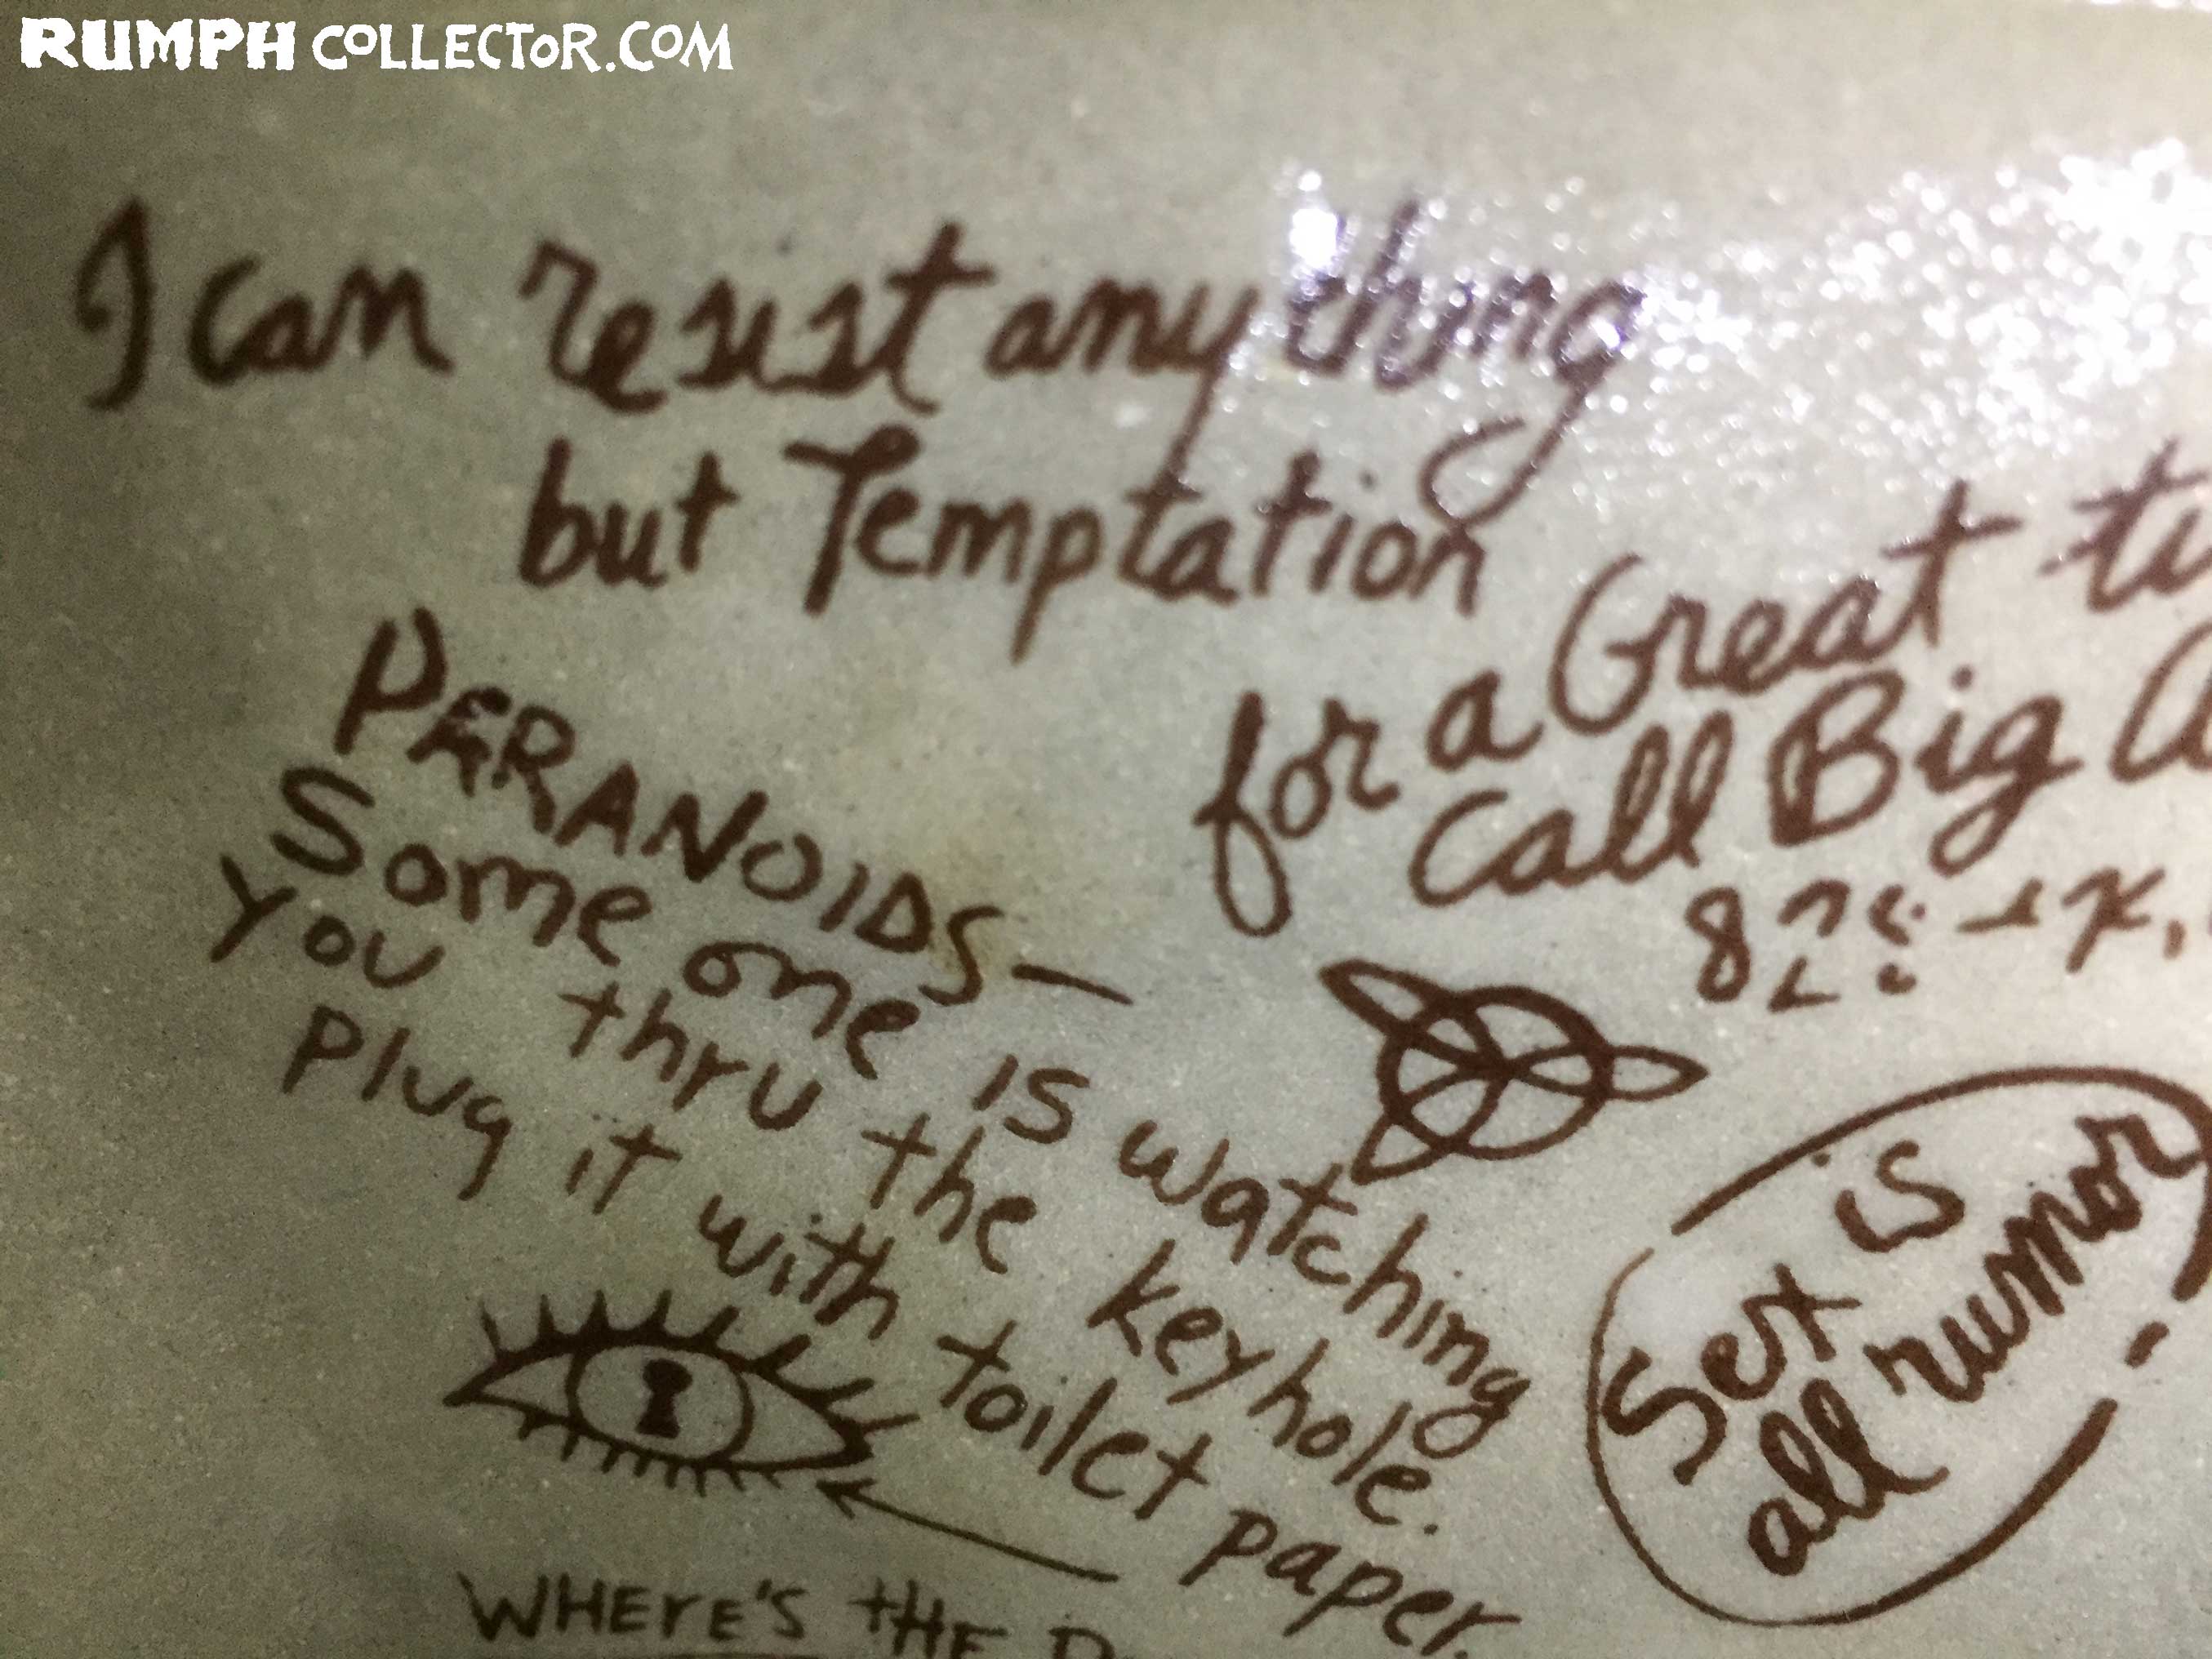 RUMPH COLLECTOR.COM
I can resist anything
but Temptation
for a Great
call Big
PERANOIDS—
Some one is watching
you thru the keyhole.
Plug it with toilet paper.
Sex is
all rumor
WHERE'S tHE